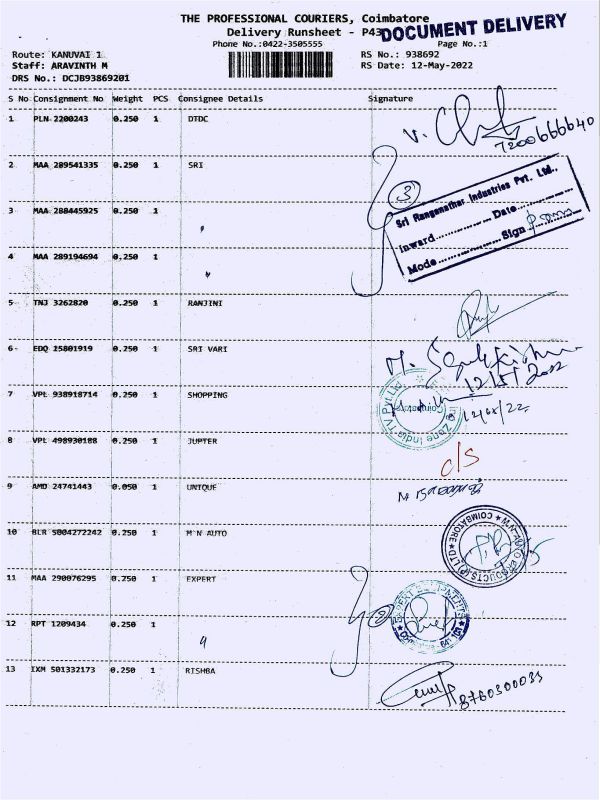 THE PROFESSIONAL COURIERS, Coimbatore
Delivery Runsheet - P43
DOCUMENT DELIVERY
Phone No.:0422-3505555
Page No.:1
Route: KANUVAI 1
RS No.: 938692
Staff: ARAVINTH M
RS Date: 12-May-2022
DRS No.: DCJB93869201
S No Consignment No Weight PCS Consignee Details Signature
1 PLN 2200243 0.250 1 DTDC
7200666640
2 MAA 289541335 0.250 1 SRI
3
Sri Ranganathar Industries Pvt. Ltd.,
Inward Date
Mode Sign
3 MAA 288445925 0.250 1 "
4 MAA 289194694 0.250 1 "
5 TNJ 3262820 0.250 1 RANJINI
6 EDQ 15801919 0.250 1 SRI VARI
12/5/2022
7 VPL 938918714 0.250 1 SHOPPING
Zone India-TV Pvt Ltd
Coimbatore
12/05/22
8 VPL 498930188 0.250 1 JUPTER
C/S
9 AMD 24741443 0.050 1 UNIQUE
10 BLR S004272242 0.250 1 M N AUTO
M.N. AUTO PRODUCTS (P) LTD
COIMBATORE
11 MAA 290076295 0.250 1 EXPERT
2
12 RPT 1209434 0.250 1 "
13 IXM 501332173 0.250 1 RISHBA
8760300033